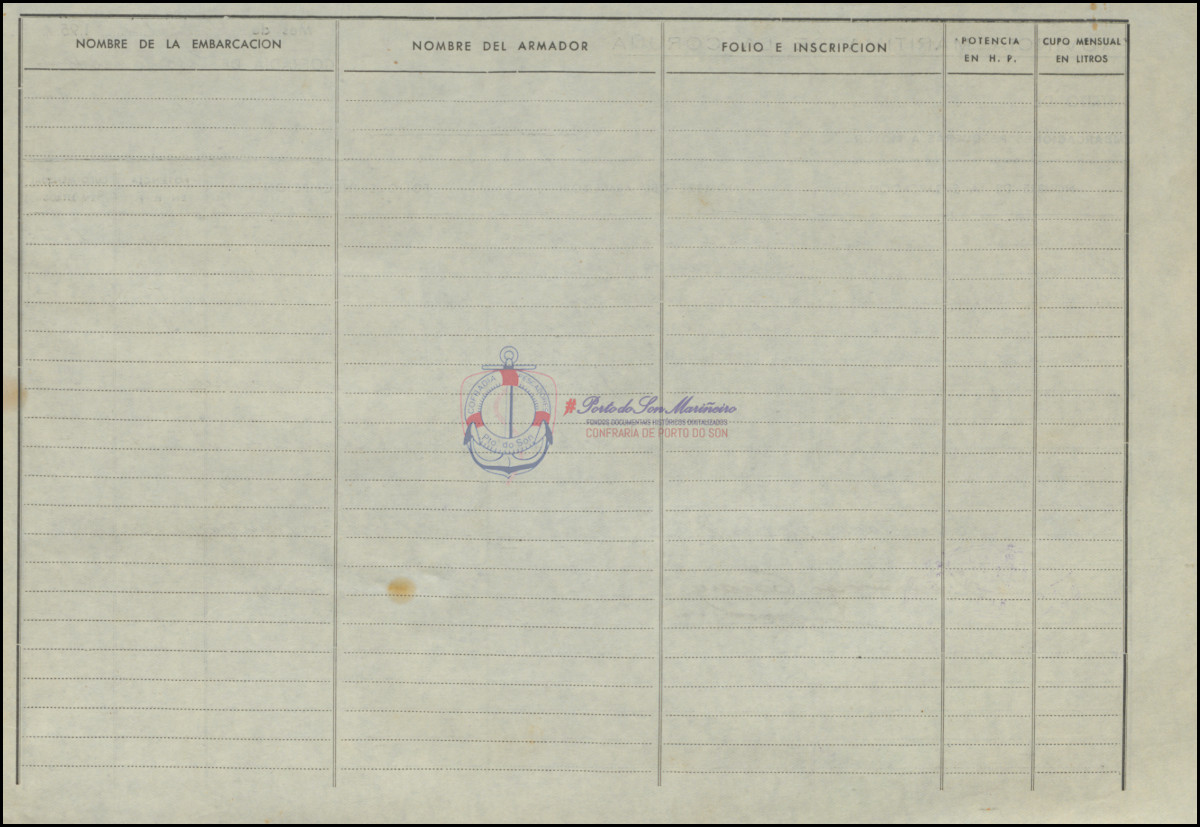 NOMBRE DE LA EMBARCACION
NOMBRE DEL ARMADOR
FOLIO E INSCRIPCION
POTENCIA
EN H. P.
CUPO MENSUAL
EN LITROS
COFRADIA PESCADORES
Pto. do Son
# Porto do Son Mariñeiro
FONDOS DOCUMENTAIS HISTÓRICOS DIXITALIZADOS
CONFRARÍA DE PORTO DO SON